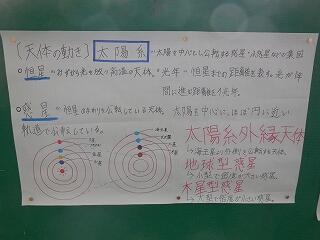 [天体の動き] 太陽系…太陽を中心とし公転する惑星・小惑星などの集団
○恒星…みずから光を放つ高温の天体。*光年…恒星までの距離を表す。光が1年
間に進む距離を1光年。
○惑星…恒星のまわりを公転している天体。太陽を中心に、ほぼ円に近い
軌道で公転している。
太陽系外縁天体
→海王星より外側を公転する天体。
地球型惑星
→小型で密度が大きい惑星。
木星型惑星
→大型で密度が小さい惑星。
海王星